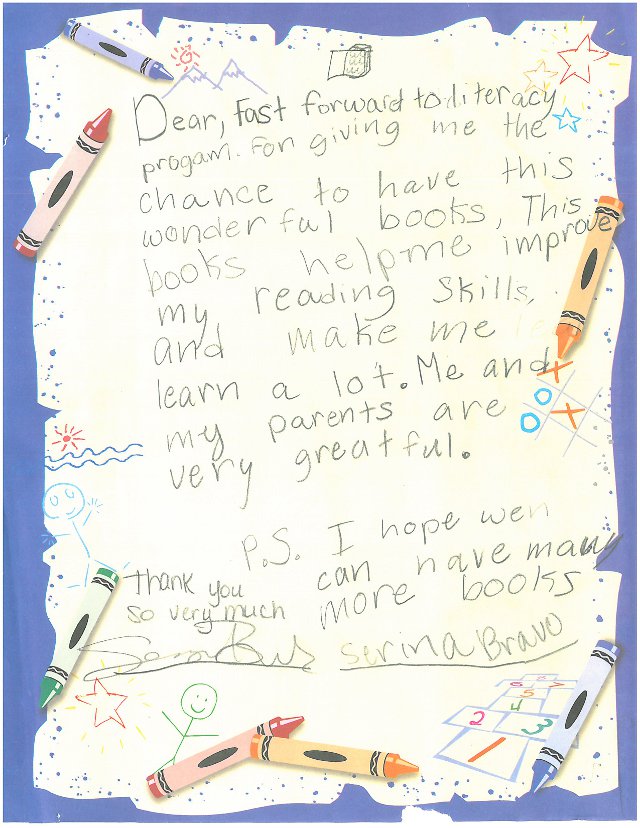 Dear, Fast forward to literacy
progam. For giving me the
chance to have this
wonderful books, This
books help me improve
my reading skills,
and make me
learn a lot. Me and
my parents are
very greatful.
P.S. I hope wen
can have many
more books
Thank you
so very much
Serina Bravo
6 7
5
4
2 3
1